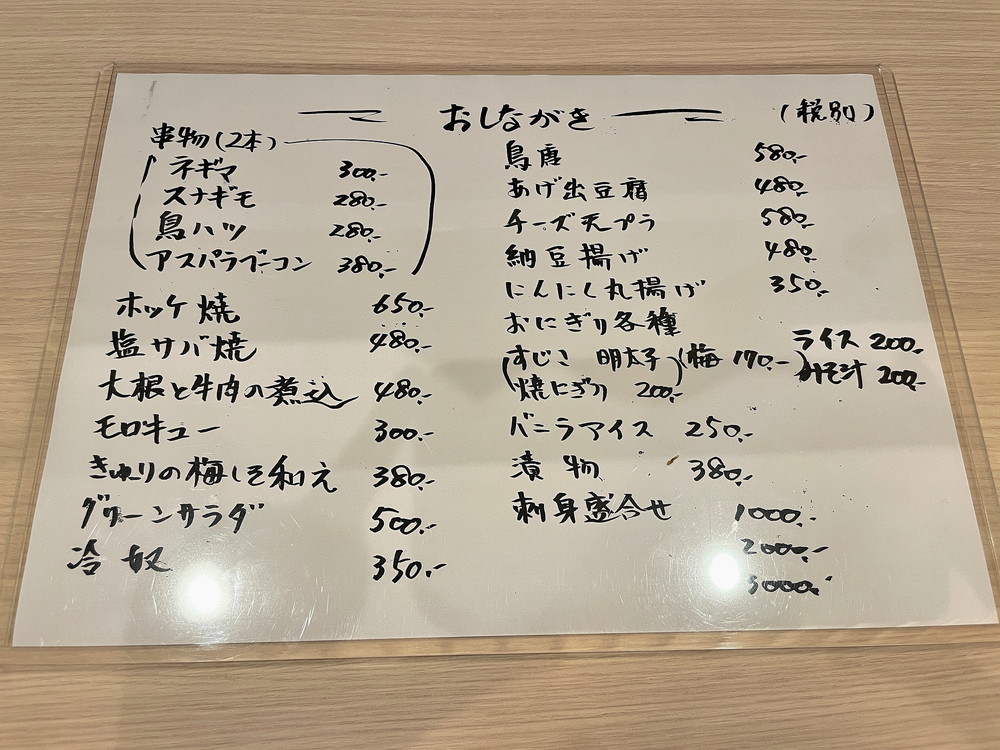 おしながき (税別)
串物(2本)
ネギマ 300.-
スナギモ 280.-
鳥ハツ 280.-
アスパラベーコン 380.-
ホッケ焼 650.-
塩サバ焼 480.-
大根と牛肉の煮込 480.-
モロキュー 300.-
きゅりの梅しそ和え 380.-
グリーンサラダ 500.-
冷奴 350.-
鳥唐 580.-
あげ出豆腐 480.-
チーズ天プラ 580.-
納豆揚げ 480.-
にんにく丸揚げ 350.-
おにぎり各種
(すじこ 明太子) (梅 170.-)
(焼にぎり 200.-)
ライス 200.-
みそ汁 200.-
バニラアイス 250.-
漬物 380.-
刺身盛合せ 1000.-
2000.-
3000.-